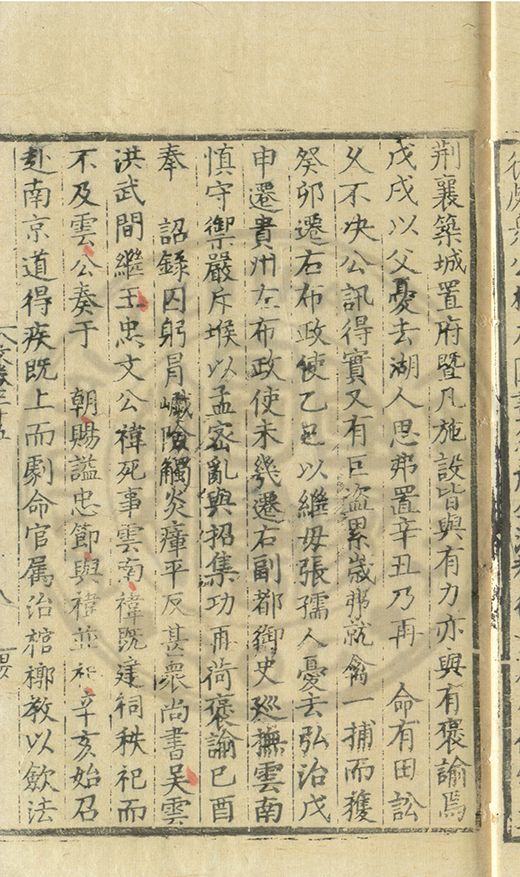 荆襄築城置府暨凡施設皆與有力亦與有褒諭焉
戊戌以父憂去湖人思弗置辛丑乃再　命有田訟
久不决公訊得實又有巨盗累歲弗就禽一捕而獲
癸卯遷右布政使乙巳以繼母張孺人憂去弘治戊
申遷貴州左布政使未幾遷右副都御史廵撫雲南
慎守禦嚴斥堠以孟密亂與招集功再荷褒諭己酉
奉　詔録囚躬冐巇險觸炎瘴平反甚衆尚書吴雲
洪武間繼王忠文公禕死事雲南禕既建祠秩祀而
不及雲公奏于　朝賜謚忠節與禕並祀辛亥始召
赴南京道得疾既上而劇命官属治棺槨教以歛法